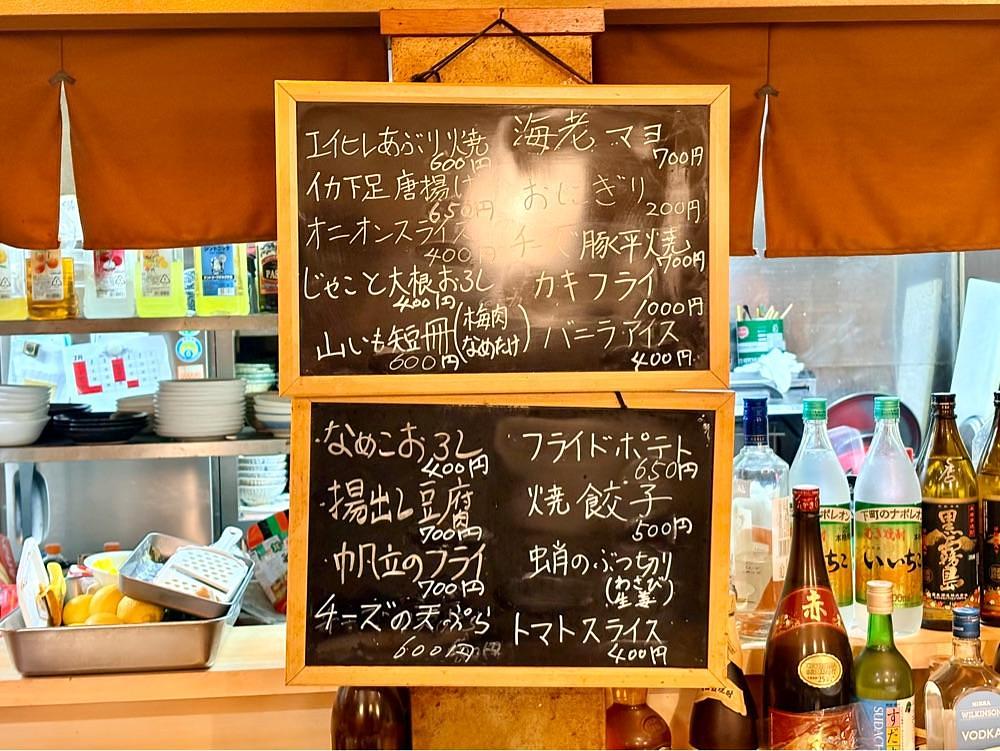 エイヒレあぶり焼
600円
イカ下足唐揚げ
650円
オニオンスライス
400円
じゃこと大根おろし
400円
山いも短冊(梅肉 なめたけ)
600円
海老マヨ
700円
おにぎり
200円
チーズ豚平焼
700円
カキフライ
1000円
バニラアイス
400円
なめこおろし
400円
揚出し豆腐
700円
帆立のフライ
700円
チーズの天ぷら
600円
フライドポテト
650円
焼餃子
500円
蛸のぶつ切り
(わさび 生姜)
トマトスライス
400円
下町のナポレオン
いいちこ
黒霧島
赤
すだち
SUDACHI
NIKKA
WILKINSON
VODKA